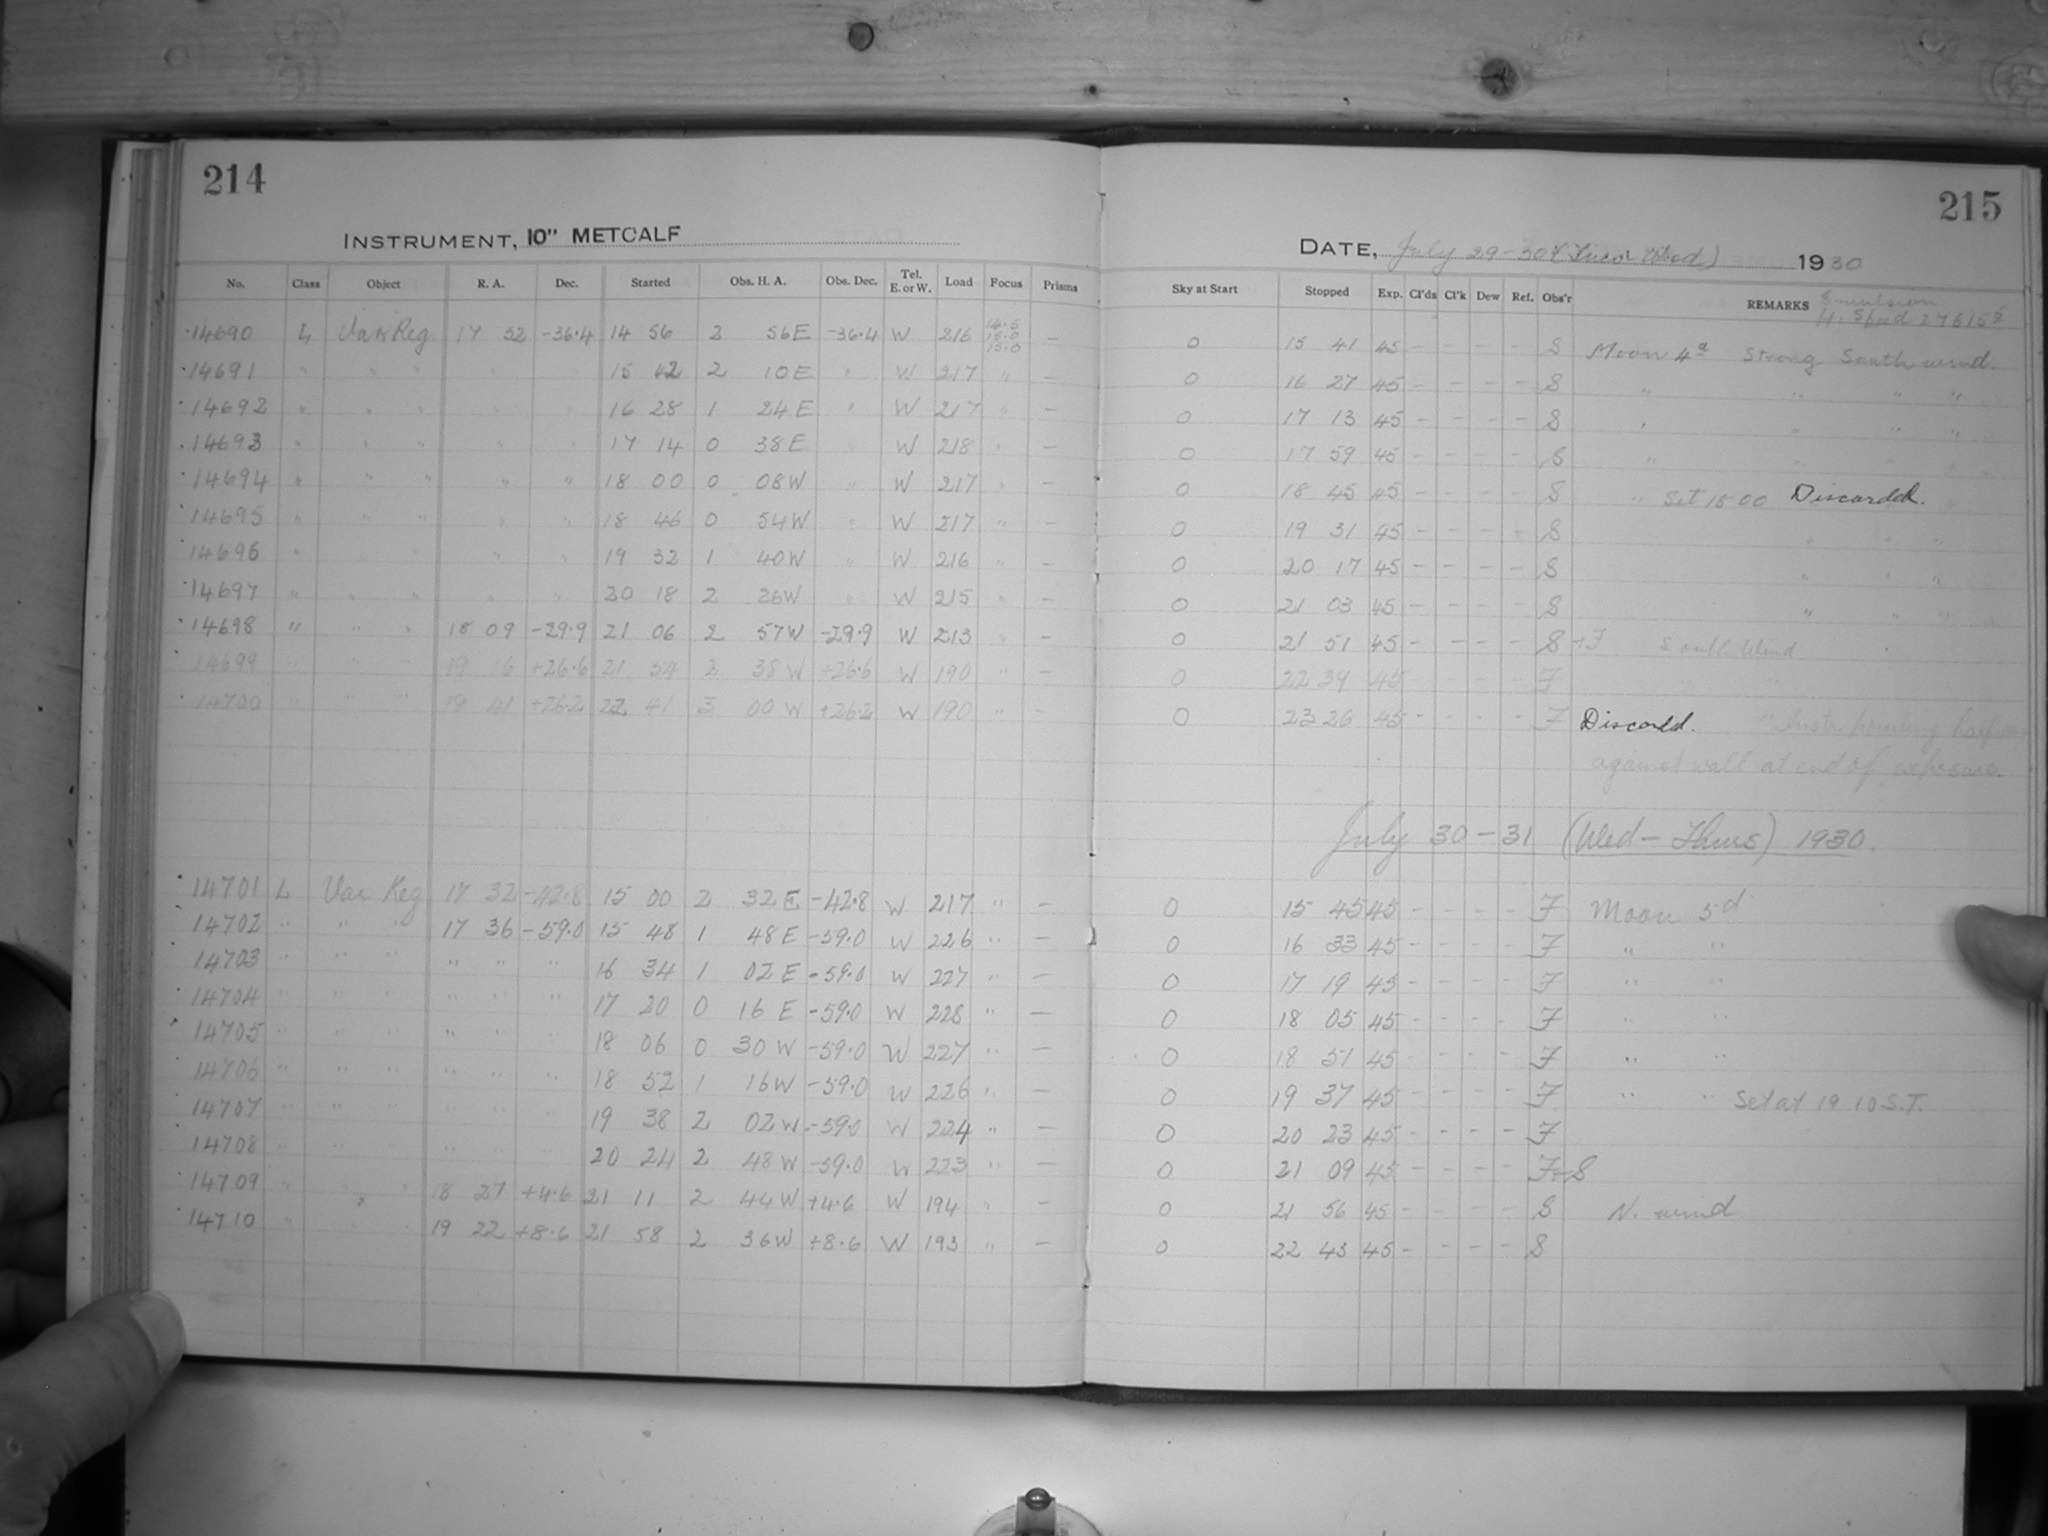 214
215
INSTRUMENT, 10" METCALF
DATE, July 29-30 1930
No. Class Object R. A. Dec. Started Obs. H. A. Obs. Dec. Tel. E. or W. Load Focus Prisms Sky at Start Stopped Exp. Cl'ds Cl'k Dew Ref. Obs'r REMARKS Emulsion
14.5
15.0
15.0
14690 L Var Reg 17 52 -36.4 14 56 2 56E -36.4 W 216 — 0 15 41 45 - - - - S Moon 4d Strong South wind.
14691 " " " " " 15 42 2 10E " W 217 " — 0 16 27 45 - - - - S " " " "
14692 " " " " " 16 28 1 24E " W 217 " — 0 17 13 45 - - - - S " " " "
14693 " " " " " 17 14 0 38E " W 218 " — 0 17 59 45 - - - - S " " " "
14694 " " " " " 18 00 0 08W " W 217 " — 0 18 45 45 - - - - S " Set 18 00 Discarded.
14695 " " " " " 18 46 0 54W " W 217 " — 0 19 31 45 - - - - S " " "
14696 " " " " " 19 32 1 40W " W 216 " — 0 20 17 45 - - - - S " " "
14697 " " " " " 20 18 2 26W " W 215 " — 0 21 03 45 - - - - S " " "
14698 " " " 18 09 -29.9 21 06 2 57W -29.9 W 213 " — 0 21 51 45 - - - - S +F South Wind
14699 " " " 19 16 +26.6 21 54 2 38W +26.6 W 190 " — 0 22 39 45 - - - - F
14700 " " " 19 41 +26.2 22 41 3 00W +26.2 W 190 " — 0 23 26 45 - - - - F Discarded. Instr. pointing half
against wall at end of exposure.
July 30-31 (Wed-Thurs) 1930.
14701 L Var Reg 17 32 -42.8 15 00 2 32E -42.8 W 217 " — 0 15 45 45 - - - - F Moon 5d
14702 " " " 17 36 -59.0 15 48 1 48E -59.0 W 226 " — 0 16 33 45 - - - - F " "
14703 " " " " " " 16 34 1 02E -59.0 W 227 " — 0 17 19 45 - - - - F " "
14704 " " " " " " 17 20 0 16E -59.0 W 228 " — 0 18 05 45 - - - - F " "
14705 " " " " " " 18 06 0 30W -59.0 W 227 " — 0 18 51 45 - - - - F " "
14706 " " " " " " 18 52 1 16W -59.0 W 226 " — 0 19 37 45 - - - - F " " Set at 19 10 S.T.
14707 " " " " " " 19 38 2 02W -59.0 W 224 " — 0 20 23 45 - - - - F
14708 " " " " " " 20 24 2 48W -59.0 W 223 " — 0 21 09 45 - - - - F+S
14709 " " " 18 27 +4.6 21 11 2 44W +4.6 W 194 " — 0 21 56 45 - - - - S N. wind
14710 " " " 19 22 +8.6 21 58 2 36W +8.6 W 193 " — 0 22 43 45 - - - - S